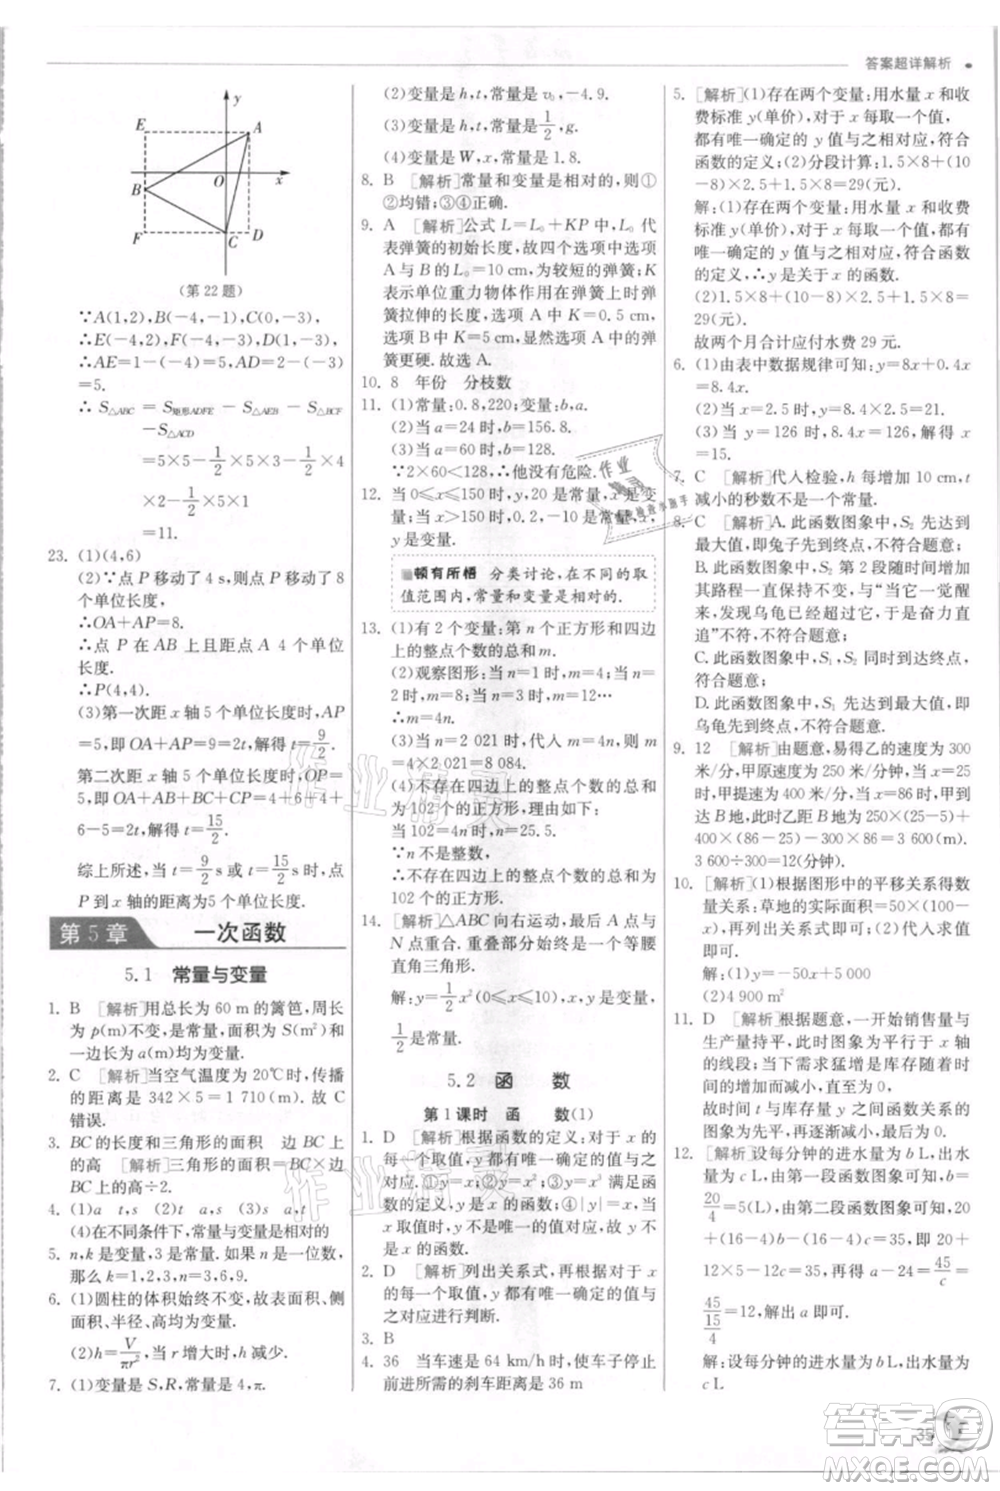 答案超详解析
y
E
A
B
O
x
F
C
D
(第22题)
∵A(1,2),B(-4,-1),C(0,-3),
∴E(-4,2),F(-4,-3),D(1,-3).
∴AE=1-(-4)=5,AD=2-(-3)
=5.
∴S△ABC=S矩形ADFE-S△AEB-S△BCF
-S△ACD
=5×5-1/2×5×3-1/2×4
×2-1/2×1×5
=11.
23. (1)(4,6)
(2)∵点P移动了4 s,即点P移动了8
个单位长度,
∴OA+AP=8.
∴点P在AB上且距点A 4个单位
长度.
∴P(4,4).
(3)第一次距x轴5个单位长度时,AP
=5,即OA+AP=9=2t,解得t=9/2.
第二次距x轴5个单位长度时,OP=
5,即OA+AB+BC+CP=4+6+4+
6-5=2t,解得t=15/2.
综上所述,当t=9/2 s或t=15/2 s时,点
P到x轴的距离为5个单位长度.
第5章 一次函数
5.1 常量与变量
1. B [解析]用总长为60 m的篱笆,周长
为p(m)不变,是常量,面积为S(m²)和
一边长为a(m)均为变量.
2. C [解析]当空气温度为20℃时,传播
的距离=342×5=1 710(m).故选项C
错误.
3. BC的长度和三角形的面积 边BC上
的高 [解析]三角形的面积=1/2×底
×高.
4. (1)a t,s (2)s a,t (3)t a,s
(4)在不同条件下,常量与变量是相对的
5. n,k是变量,3是常量. 如果n是一位数,
那么k=3n+12.
6. (1)圆柱的体积始终不变,故表面积、侧
面积、半径、高均为变量.
(2)h=V/πr²,当r增大时,h减少.
7. (1)变量是S,R,常量是4,π.
(2)变量是h,t,常量是v₀,-4.9.
(3)变量是h,t,常量是1/2,g.
(4)变量是W,x,常量是1.8.
8. B [解析]常量和变量是相对的,则①
②均错;③④正确.
9. A [解析]公式L=L₀+KP中,L₀代
表弹簧的初始长度,故四个选项中选项
A与B的L₀=10 cm,为较短的弹簧;K
表示单位重力物体作用在弹簧上时弹
簧拉伸的长度,选项A中K=0.5 cm,
选项B中K=5 cm,显然选项A中的弹
簧更硬.故选A.
10. 8 年份 分枝数
11. (1)常量:0.8,220;变量:b,a.
(2)当a=24时,b=156.8.
(3)当a=60时,b=128.
∵2×60<128,∴他没有危险.
12. 当0≤x≤150时,y,20是常量,x是变
量;当x>150时,0.2,-10是常量,x,
y是变量.
顿有所悟 分类讨论,在不同的取
值范围内,常量和变量是相对的.
13. (1)有2个变量:第n个正方形和四边
上的整点个数的总和m.
(2)观察图形:当n=1时,m=4;当n=
2时,m=8;当n=3时,m=12…
∴m=4n.
(3)当n=2 021时,代入m=4n,得m=
4×2 021=8 084.
(4)不存在四边上的整点个数的总和为
102的正方形,理由如下:
当102=4n时,n=25.5.
∵n不是整数,
∴不存在四边上的整点个数的总和为
102的正方形.
14. [解析]△ABC向右运动,最后A点与
N点重合.重叠部分始终是一个等腰
直角三角形.
解:y=1/2x²(0≤x≤10),x,y是变量,
1/2是常量.
5.2 函 数
第1课时 函 数(1)
1. D [解析]根据函数的定义:对于x的
每一个取值,y都有唯一确定的值与之
对应.①y=x;②y=x²;③y=x³满足函
数的定义,y是x的函数;④|y|=x,当x
取值时,y不是有唯一的值对应,故y不
是x的函数.
2. D [解析]列出关系式,再一一对于x
的每一个取值,y有唯一确定的值与
之对应进行判断.
3. B
4. 36 当车速是64 km/h时,使车子停止
前进所需的刹车距离是36 m
5. [解析](1)存在两个变量:用水量x和收
费标准y(单价),对于x每取一个值,y
都有唯一确定的值与之相对应,符合
函数的定义;(2)分段计算:1.5×8+(10
-8)×2.5+1.5×8=29(元).
解:(1)存在两个变量:用水量x和收费
标准y(单价),对于x每取一个值,y都
有唯一确定的值与之相对应,符合函数
的定义,∴y是关于x的函数.
(2)1.5×8+(10-8)×2.5+1.5×8=
29(元).
故两个月合计应付水费29元.
6. (1)由表中数据规律可知:y=8x+0.4x=
8.4x.
(2)当x=2.5时,y=8.4×2.5=21.
(3)当y=126时,8.4x=126,解得x
=15.
7. C [解析]代入检验,h每增加10 cm,t
减小的秒数不是一个常量.
8. C [解析]A.此函数图象中,S₂先达到最
大值,即兔子先到终点,不符合题意;
B.此函数图象中,S₂第2段随时间增加
其路程一直保持不变,与“当它一觉醒
来,发现乌龟已经超过它,于是奋力直
追”不符,不符合题意;
C.此函数图象中,S₁,S₂同时到达终点,
符合题意;
D.此函数图象中,S₁先达到最大值,即
乌龟先到终点,不符合题意.
9. 12 [解析]由题意,易得乙的速度为300
米/分,甲原来速度为250米/分,当x=25
时,甲提速为400米/分,当x=86时,甲到
达B地,此时乙距B地为250×(25-5)+
400×(86-25)-300×86=3 600(m).
3 600÷300=12(分钟).
10. [解析](1)根据图形的平移关系得数
量关系:草地的实际面积=(100-x)×
50,再列出关系式.(2)代入求值即可.
解:(1)y=-50x+5 000
(2)4 900 m²
11. D [解析]根据题意,一开始销售量与
生产量持平,此时图象为平行于x轴
的线段;当下半年月均销售量大于月
均生产量,此时图象应为库存随时间
的增加而减小,
故时间t与库存量y之间函数关系的
图象为先平,再逐渐减小,最后为0.
12. [解析]设每分钟的进水量为b L,出水
量为c L,由第一段函数图象可知,b=
20/4=5(L),由第二段函数图象可知,20
+(16-4)b-(16-4)c=35,即20+
12×5-12c=35,解得c=15/4,则a-16=
45/c=45/(15/4)=12,解出a即可.
解:设每分钟的进水量为b L,出水量为
c L